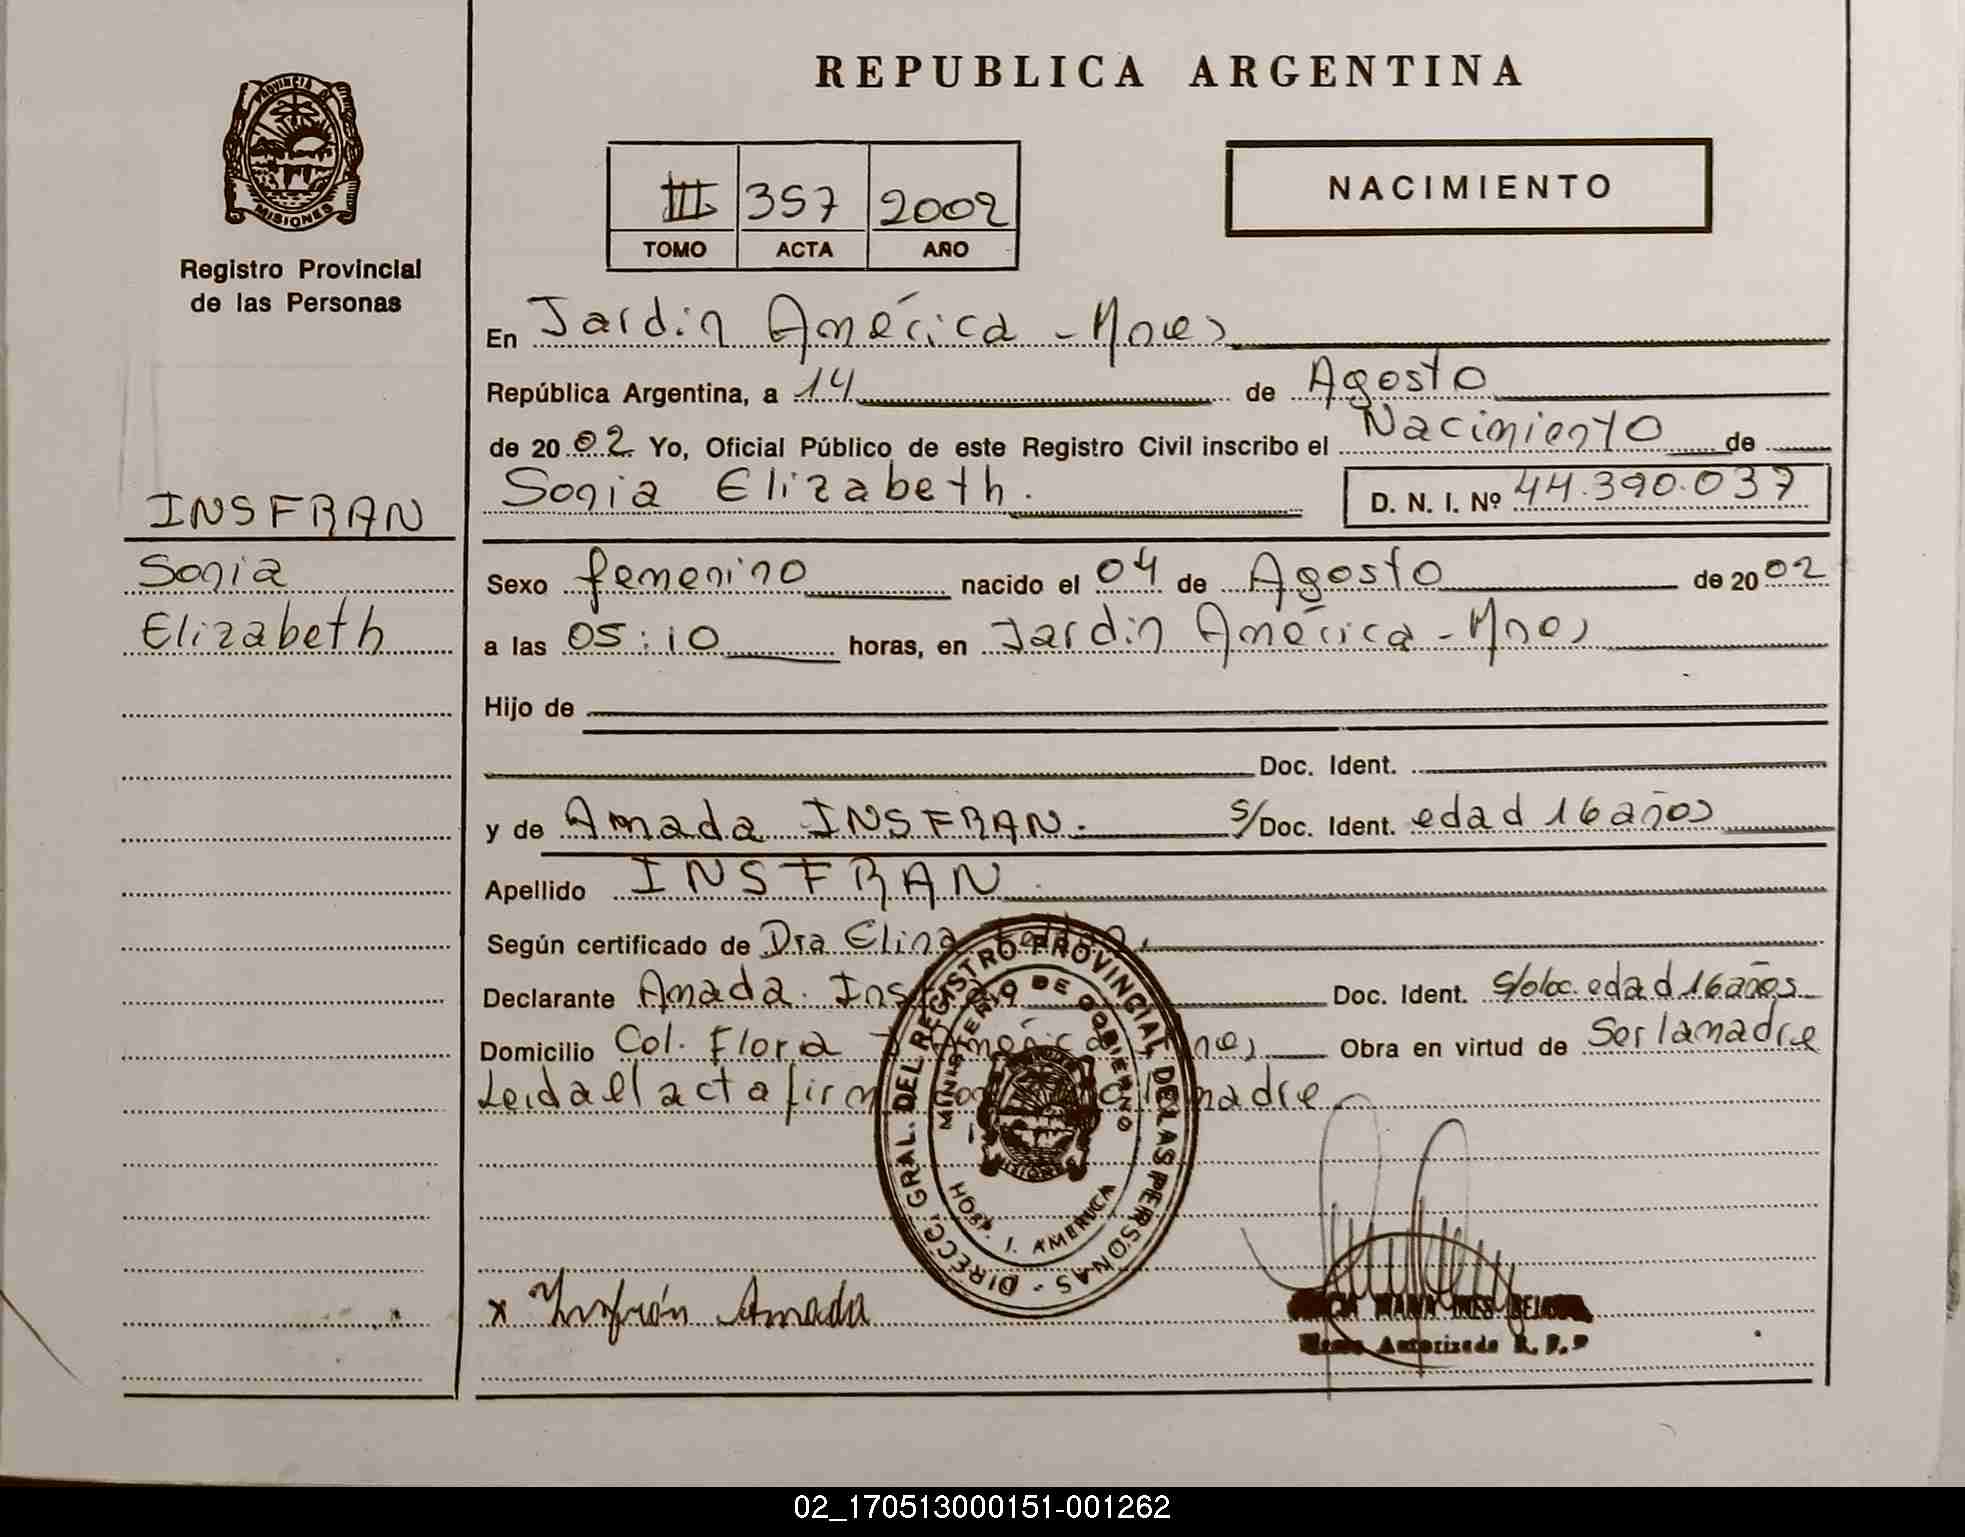 REPUBLICA ARGENTINA
PROVINCIA DE
MISIONES
Registro Provincial
de las Personas
III 357 2002
TOMO ACTA AÑO
NACIMIENTO
En Jardin América - Mnes
República Argentina, a 14 de Agosto
de 20 02 Yo, Oficial Público de este Registro Civil inscribo el Nacimiento de
Sonia Elizabeth. D. N. I. Nº 44.390.037
INSFRAN
Sonia
Elizabeth
Sexo femenino nacido el 04 de Agosto de 20 02
a las 05:10 horas, en Jardin América - Mnes
Hijo de
Doc. Ident.
y de Amada INSFRAN. S/Doc. Ident. edad 16 años
Apellido INSFRAN
Según certificado de Dra Elina
Declarante Amada Insfran Doc. Ident. S/doc. edad 16 años
Domicilio Col. Flora J. América Mnes Obra en virtud de Ser la madre
Leida el acta firma la madre
DIRECC. GRAL. DEL REGISTRO PROVINCIAL DE LAS PERSONAS -
MINISTERIO DE GOBIERNO
MISIONES
HOSP. J. AMERICA
x Insfrán Amada
MARIA INES
Autorizado R. P. P
02_170513000151-001262